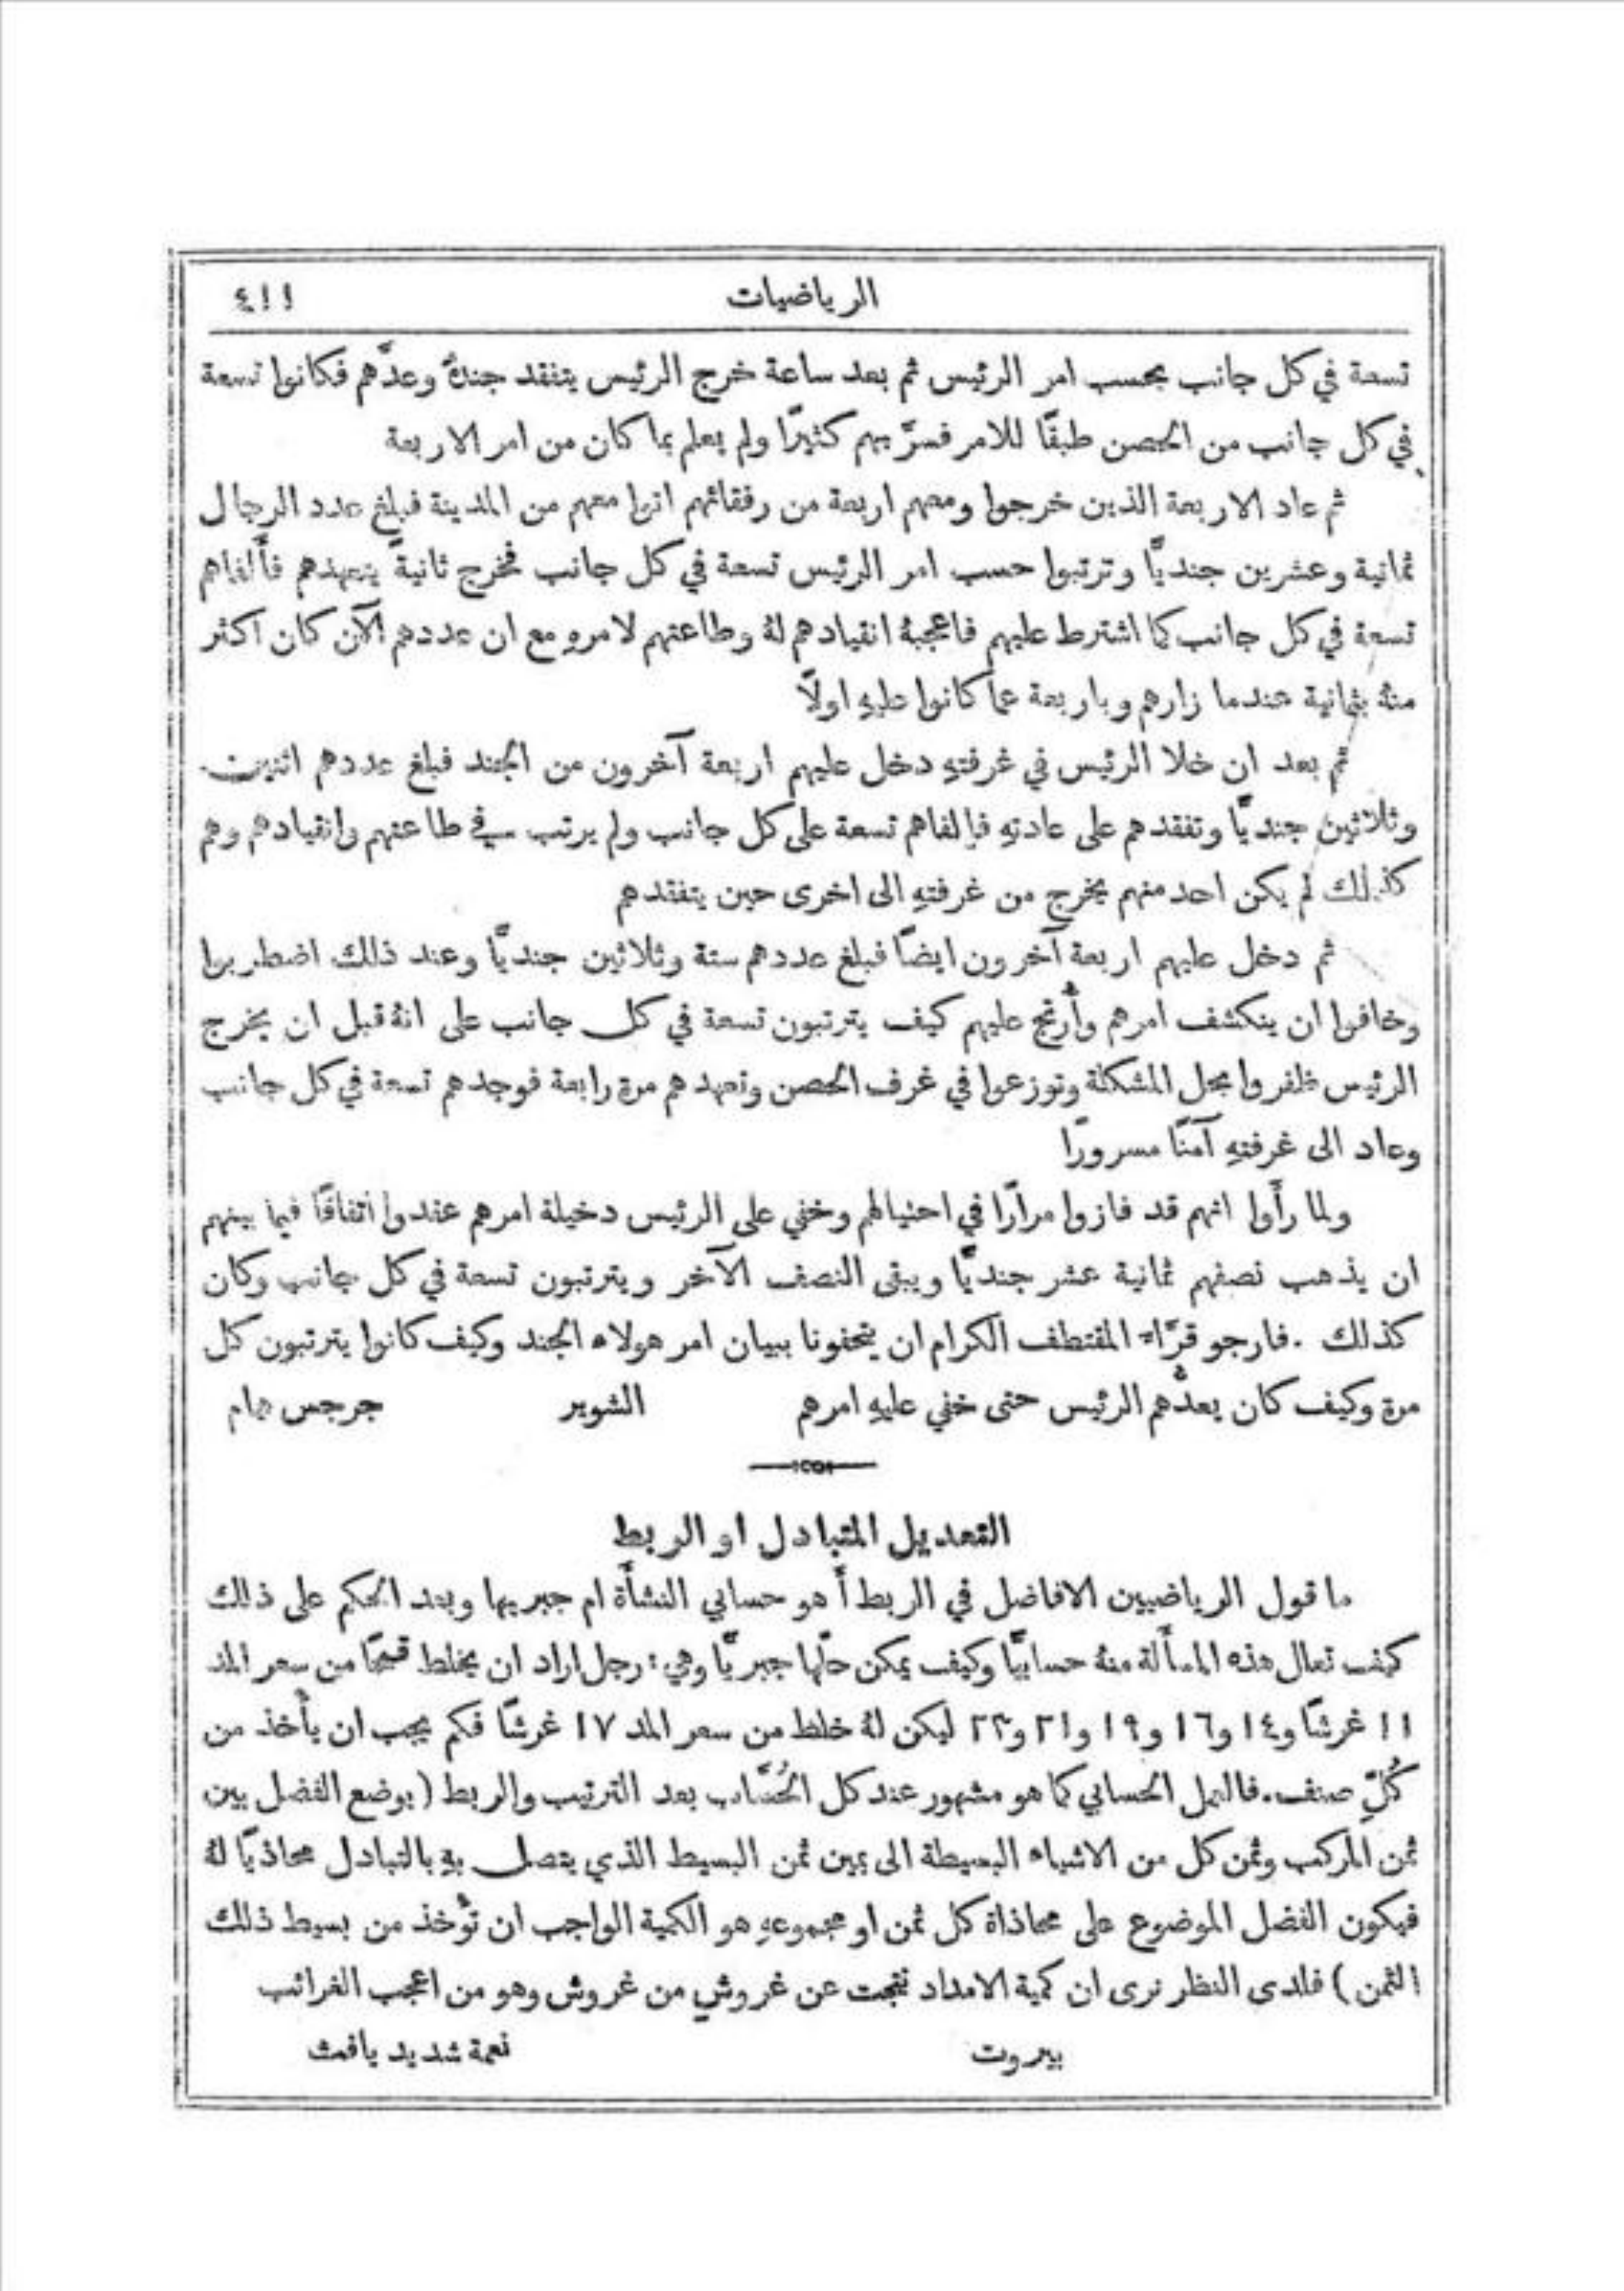 الرياضيات
٤١١
تسعة في كل جانب بحسب امر الرئيس ثم بعد ساعة خرج الرئيس يتفقد جندهُ وعدَّهم فكانوا تسعة
في كل جانب من الحصن طبقًا للامر فسرَّ بهم كثيرًا ولم يعلم بما كان من امر الاربعة
ثم عاد الاربعة الذين خرجوا ومعهم اربعة من رفقائهم اتوا معهم من المدينة فبلغ عدد الرجال
ثمانية وعشرين جنديًّا وترتبوا حسب امر الرئيس تسعة في كل جانب فخرج ثانيةً يتعهدهم فأَلفاهم
تسعة في كل جانب كما اشترط عليهم فاعجبهُ انقيادهم لهُ وطاعتهم لامرهِ مع ان عددهم الآن كان اكثر
منهُ بثمانية عندما زارهم وباربعة عما كانوا عليهِ اولًا
ثم بعد ان خلا الرئيس في غرفتهِ دخل عليهم اربعة آخرون من الجند فبلغ عددهم اثنين
وثلاثين جنديًّا وتفقدهم على عادتهِ فالفاهم تسعة على كل جانب ولم يرتب في طاعتهم وانقيادهم وهم
كذلك لم يكن احد منهم يخرج من غرفتهِ الى اخرى حين يتفقدهم
ثم دخل عليهم اربعة آخرون ايضًا فبلغ عددهم ستة وثلاثين جنديًّا وعند ذلك اضطربوا
وخافوا ان ينكشف امرهم وأُرتج عليهم كيف يترتبون تسعة في كل جانب على انهُ قبل ان يخرج
الرئيس ظفروا بحل المشكلة وتوزعوا في غرف الحصن وتعهدهم مرة رابعة فوجدهم تسعة في كل جانب
وعاد الى غرفتهِ آمنًا مسرورًا
ولما رأَوا انهم قد فازوا مرارًا في احتيالهم وخفي على الرئيس دخيلة امرهم عقدوا اتفاقًا فيما بينهم
ان يذهب نصفهم ثمانية عشر جنديًّا ويبقى النصف الآخر ويترتبون تسعة في كل جانب وكان
كذلك . فارجو قرَّاءَ المقتطف الكرام ان يتحفونا ببيان امر هولاء الجند وكيف كانوا يترتبون كل
مرة وكيف كان يعدُّهم الرئيس حتى خفي عليهِ امرهم الشوير جرجس همام
التعديل المتبادل او الربط
ما قول الرياضيين الافاضل في الربط أَ هو حسابي النشأَة ام جبريها وبعد الحكم على ذلك
كيف تعال هذه المسأَلة منهُ حسابيًّا وكيف يمكن حلّها جبريًّا وهي : رجل اراد ان يخلط قمحًا من سعر المد
١١ غرشًا و١٤ و١٦ و١٩ و٢١ و٢٣ ليكن لهُ خلط من سعر المد ١٧ غرشًا فكم يجب ان يأْخذ من
كُلِّ صنف. فالعمل الحسابي كما هو مشهور عند كل الحُسَّاب بعد الترتيب والربط (بوضع الفضل بين
ثمن المركب وثمن كل من الاشياء البسيطة الى يمين ثمن البسيط الذي يتصل بهِ بالتبادل محاذيًا لهُ
فيكون الفضل الموضوع على محاذاة كل ثمن او مجموعهِ هو الكمية الواجب ان تؤْخذ من بسيط ذلك
الثمن) فلدى النظر نرى ان كمية الامداد نتجت عن غروشٍ من غروش وهو من اعجب الغرائب
بيروت نعمة شديد يافث